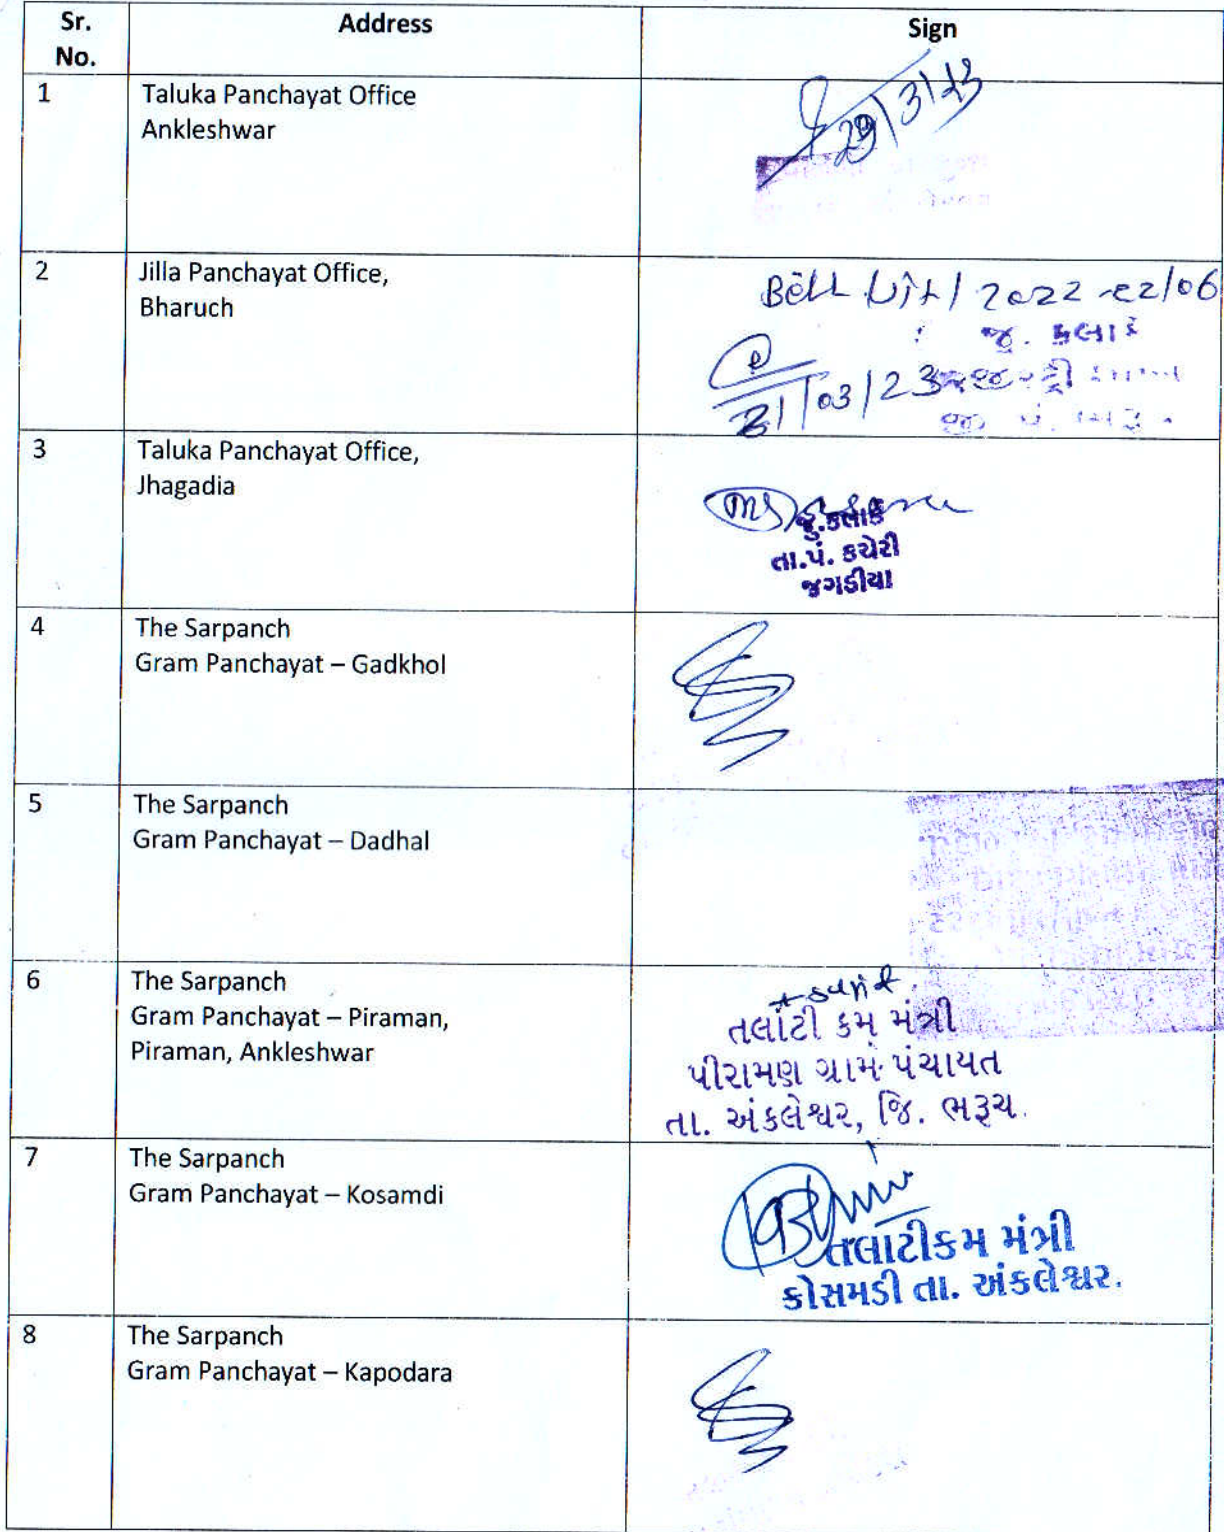 Sr. No.
Address
Sign
1
Taluka Panchayat Office
Ankleshwar
29/3/23
2
Jilla Panchayat Office,
Bharuch
2022
/06
જુ. કલાર્ક
31/03/23
3
Taluka Panchayat Office,
Jhagadia
જુ.કલાર્ક
તા.પં. કચેરી
જગડીયા
4
The Sarpanch
Gram Panchayat – Gadkhol
5
The Sarpanch
Gram Panchayat – Dadhal
6
The Sarpanch
Gram Panchayat – Piraman,
Piraman, Ankleshwar
તલાટી કમ મંત્રી
પીરામણ ગ્રામ પંચાયત
તા. અંકલેશ્વર, જિ. ભરૂચ.
7
The Sarpanch
Gram Panchayat – Kosamdi
તલાટીકમ મંત્રી
કોસમડી તા. અંકલેશ્વર.
8
The Sarpanch
Gram Panchayat – Kapodara